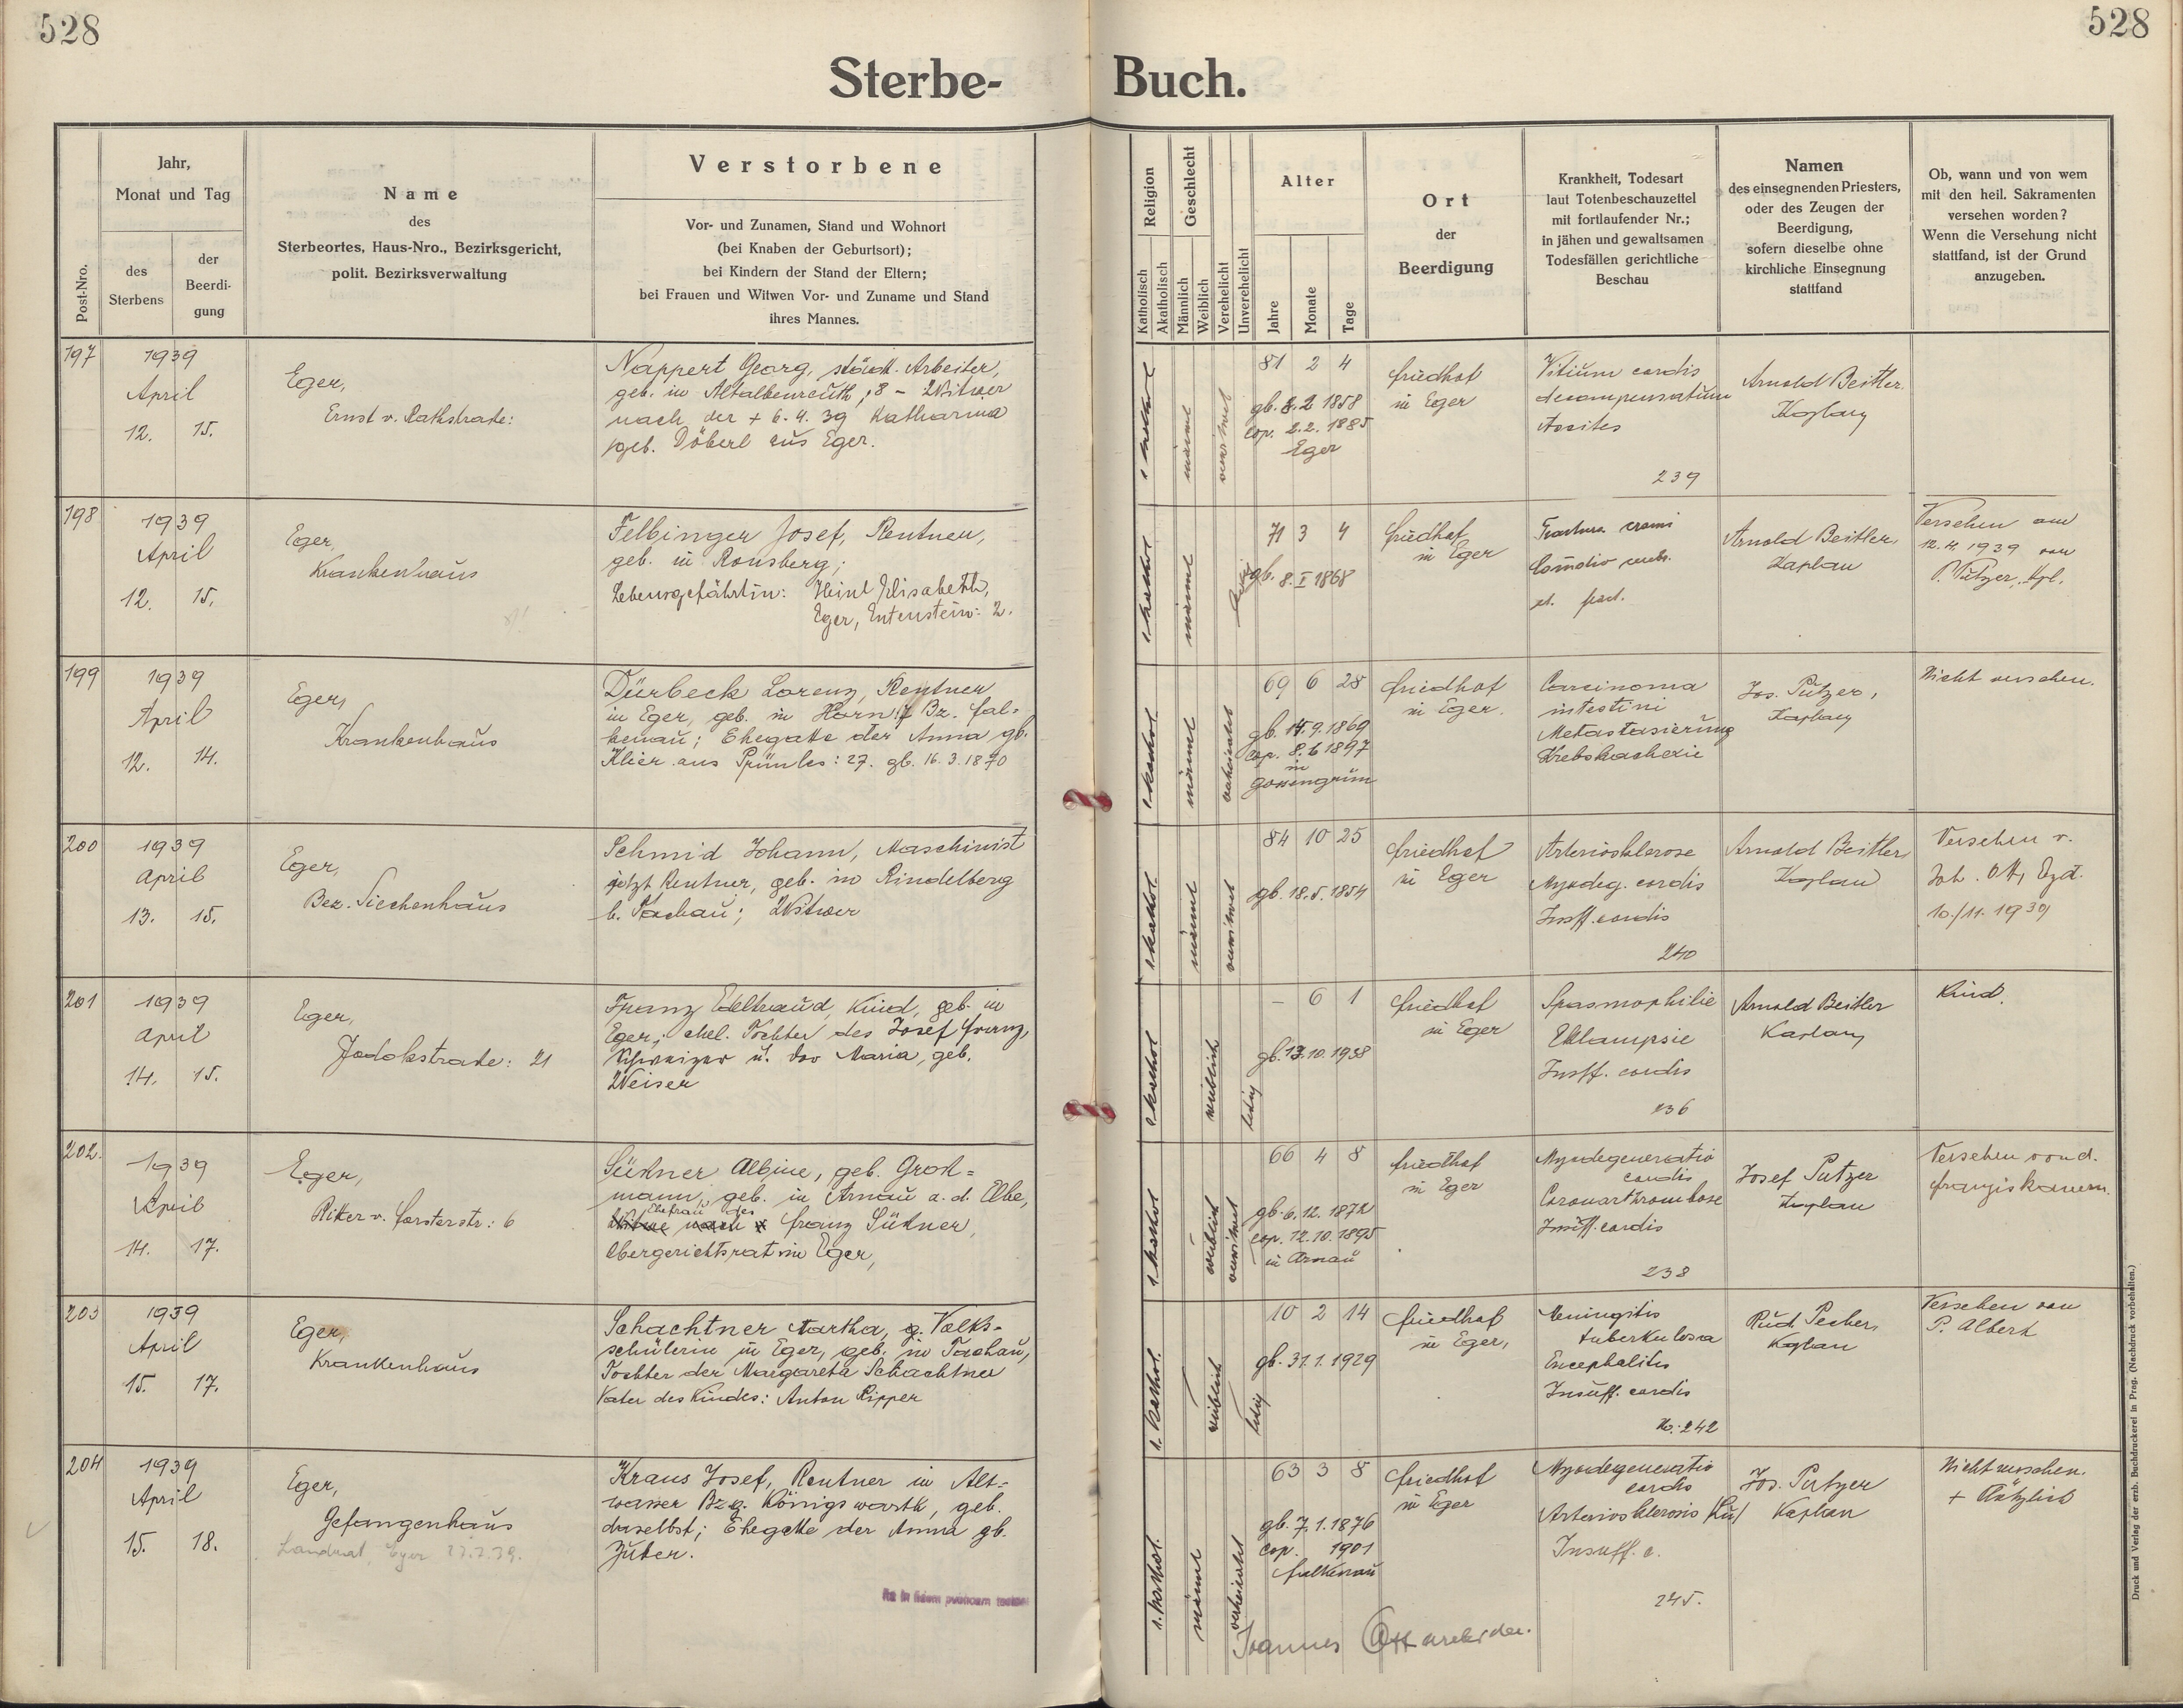 528
528
Sterbe- Buch.
Post-Nro.
Jahr,
Monat und Tag
des
Sterbens
der
Beerdi-
gung
Name
des
Sterbeortes, Haus-Nro., Bezirksgericht,
polit. Bezirksverwaltung
Verstorbene
Vor- und Zunamen, Stand und Wohnort
(bei Knaben der Geburtsort);
bei Kindern der Stand der Eltern;
bei Frauen und Witwen Vor- und Zuname und Stand
ihres Mannes.
Religion
Katholisch
Akatholisch
Geschlecht
Männlich
Weiblich
Verehelicht
Unverehelicht
Alter
Jahre
Monate
Tage
Ort
der
Beerdigung
Krankheit, Todesart
laut Totenbeschauzettel
mit fortlaufender Nr.;
in jähen und gewaltsamen
Todesfällen gerichtliche
Beschau
Namen
des einsegnenden Priesters,
oder des Zeugen der
Beerdigung,
sofern dieselbe ohne
kirchliche Einsegnung
stattfand
Ob, wann und von wem
mit den heil. Sakramenten
versehen worden?
Wenn die Versehung nicht
stattfand, ist der Grund
anzugeben.
197
1939
April
12. 15.
Eger,
Ernst v. Rathstraße:
Nappert Georg, städt. Arbeiter,
geb. in Altalbenreuth, 8 - Witwer
nach der + 6.4.39 Katharina
geb. Döberl aus Eger.
männl
verwitwet
81 2 4
gb. 8.2.1858
cop. 2.2.1885
Eger
Friedhof
in Eger
Vitium cordis
decompensatum
Ascites
239
Arnold Beitler
Kaplan
198
1939
April
12. 15.
Eger,
Krankenhaus
Felbinger Josef, Rentner,
geb. in Ronsberg;
Lebensgefährtin: Heinl Elisabeth,
Eger, Entenstein: 2.
r. kathol
männl
71 3 4
gb. 8.I 1868
Friedhof
in Eger
Fractura cranii
Comotio cerebr.
Arnold Beitler,
Kaplan
Versehen am
12.4.1939 von
P. Putzer, Kpl.
199
1939
April
12. 14.
Eger,
Krankenhaus
Dürbeck Lorenz, Rentner
in Eger, geb. in Horn, Bz. Fal-
kenau; Ehegatte der Anna gb.
Klier aus Prünles: 27. gb. 16.3.1870
r. kathol.
männl
verheiratet
69 6 28
gb. 14.9.1869
cop. 8.6.1897
in
Gossengrün
Friedhof
in Eger.
Carcinoma
intestini
Metastasierung
Krebskachexie
Jos. Putzer,
Kaplan
Nicht versehen.
200
1939
April
13. 15.
Eger,
Bez. Siechenhaus
Schmid Johann, Maschinist
jetzt Rentner, geb. in Rindelberg
b. Tachau; Witwer
r. kathol.
männl
verwitwet
84 10 25
gb. 18.5.1854
Friedhof
in Eger
Arteriosklerose
Myodeg. cordis
Insuff. cordis
240
Arnold Beitler
Kaplan
Versehen v.
Joh. Ott, Dzd.
10./11. 1939
201
1939
April
14. 15.
Eger,
Jodokstraße: 21
Franz Edeltraud, Kind, geb. in
Eger, ehel. Tochter des Josef Franz,
Schweizer u. der Maria, geb.
Weiser
r. kathol
weiblich
ledig
- 6 1
gb. 13.10.1938
Friedhof
in Eger
Spasmophilie
Eklampsie
Insuff. cordis
236
Arnold Beitler
Kaplan
Kind.
202.
1939
April
14. 17.
Eger,
Ritter v. Forsterstr: 6
Süßner Albine, geb. Groß-
mann, geb. in Arnau a. d. Elbe,
Ehefrau des
Witwe nach + Franz Süßner,
Obergerichtsrat in Eger,
r. kathol
weiblich
verwitwet
66 4 8
gb. 6.12.1872
cop. 12.10.1895
in Arnau
Friedhof
in Eger
Myodegeneratio
cordis
Coronarthrombose
Insuff. cordis
238
Josef Putzer
Kaplan
Versehen von d.
Franziskanern.
203
1939
April
15. 17.
Eger,
Krankenhaus
Schachtner Martha, Volks-
schülerin in Eger, geb. in Tachau,
Tochter der Margareta Schachtner
Vater des Kindes: Anton Ripper
r. kathol.
weiblich
ledig
10 2 14
gb. 31.1.1929
Friedhof
in Eger,
Meningitis
tuberkulosa
Encephalitis
Insuff. cordis
No: 242
Rud Pecher,
Kaplan
Versehen von
P. Albert
204
1939
April
15. 18.
Eger,
Gefangenhaus
Landrat, Eger
Kraus Josef, Rentner in Alt-
wasser Bzg. Königswarth, geb.
daselbst; Ehegatte der Anna gb.
Zuber.
r. kathol.
männl
verheiratet
63 3 8
gb. 7.1.1876
cop. 1901
Falkenau
Friedhof
in Eger
Myodegeneratio
cordis
Arteriosklerosis
Insuff. c.
245.
Jos. Putzer
Kaplan
Nicht versehen.
+ Plötzlich
Ita in fidem publicam testor
Joannes Ott
Druck und Verlag der erzb. Buchdruckerei in Prag. (Nachdruck vorbehalten.)